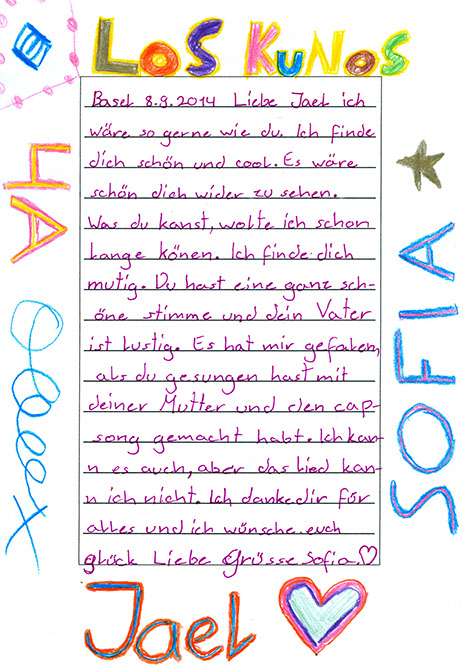 LOS KUNOS
Basel 8.9.2014 Liebe Jael ich
wäre so gerne wie du. Ich finde
dich schön und cool. Es wäre
schön dich wider zu sehen.
Was du kanst, wolte ich schon
lange könen. Ich finde dich
mutig. Du hast eine ganz sch-
öne stimme und dein Vater
ist lustig. Es hat mir gefalen,
als du gesungen hast mit
deiner Mutter und den cap-
song gemacht habt. Ich kan-
n es auch, aber das Lied kan-
n ich nicht. Ich danke dir für
alles und ich wünsche euch
glück Liebe Grüsse Sofia.♡
4A
SOFIA
Jael